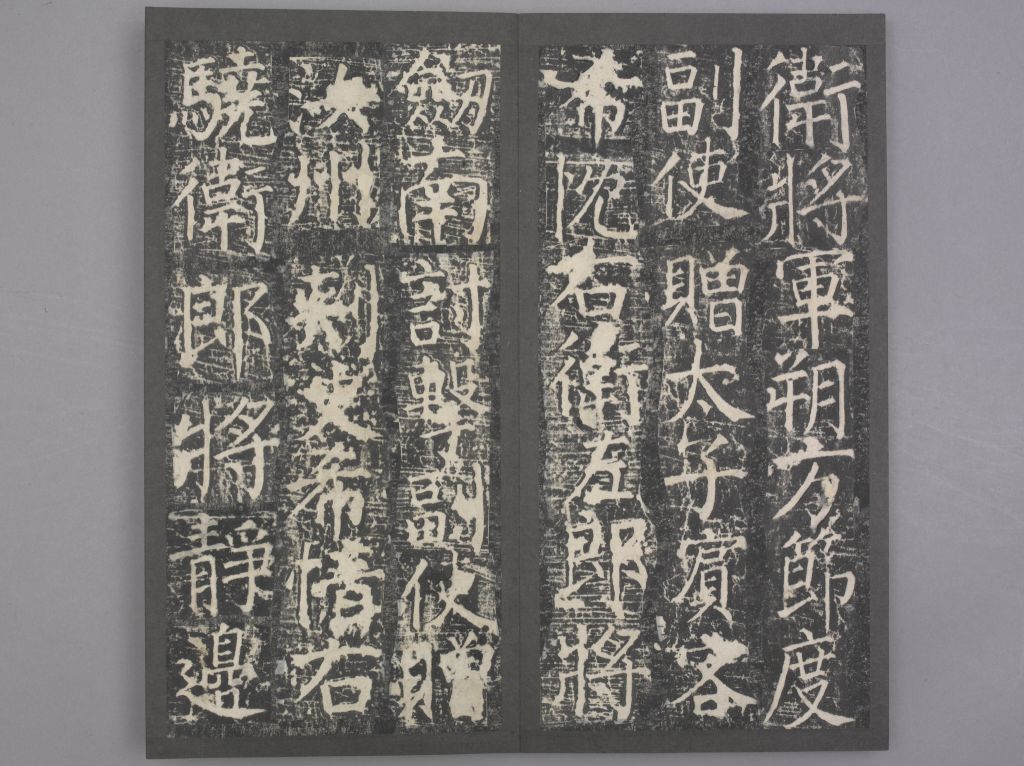 衛將軍朔方節度
副使贈太子賓客
希忱右衛左郎將
劒南討擊副使贈
州刺史希愔右
驍衛郎將靜邊